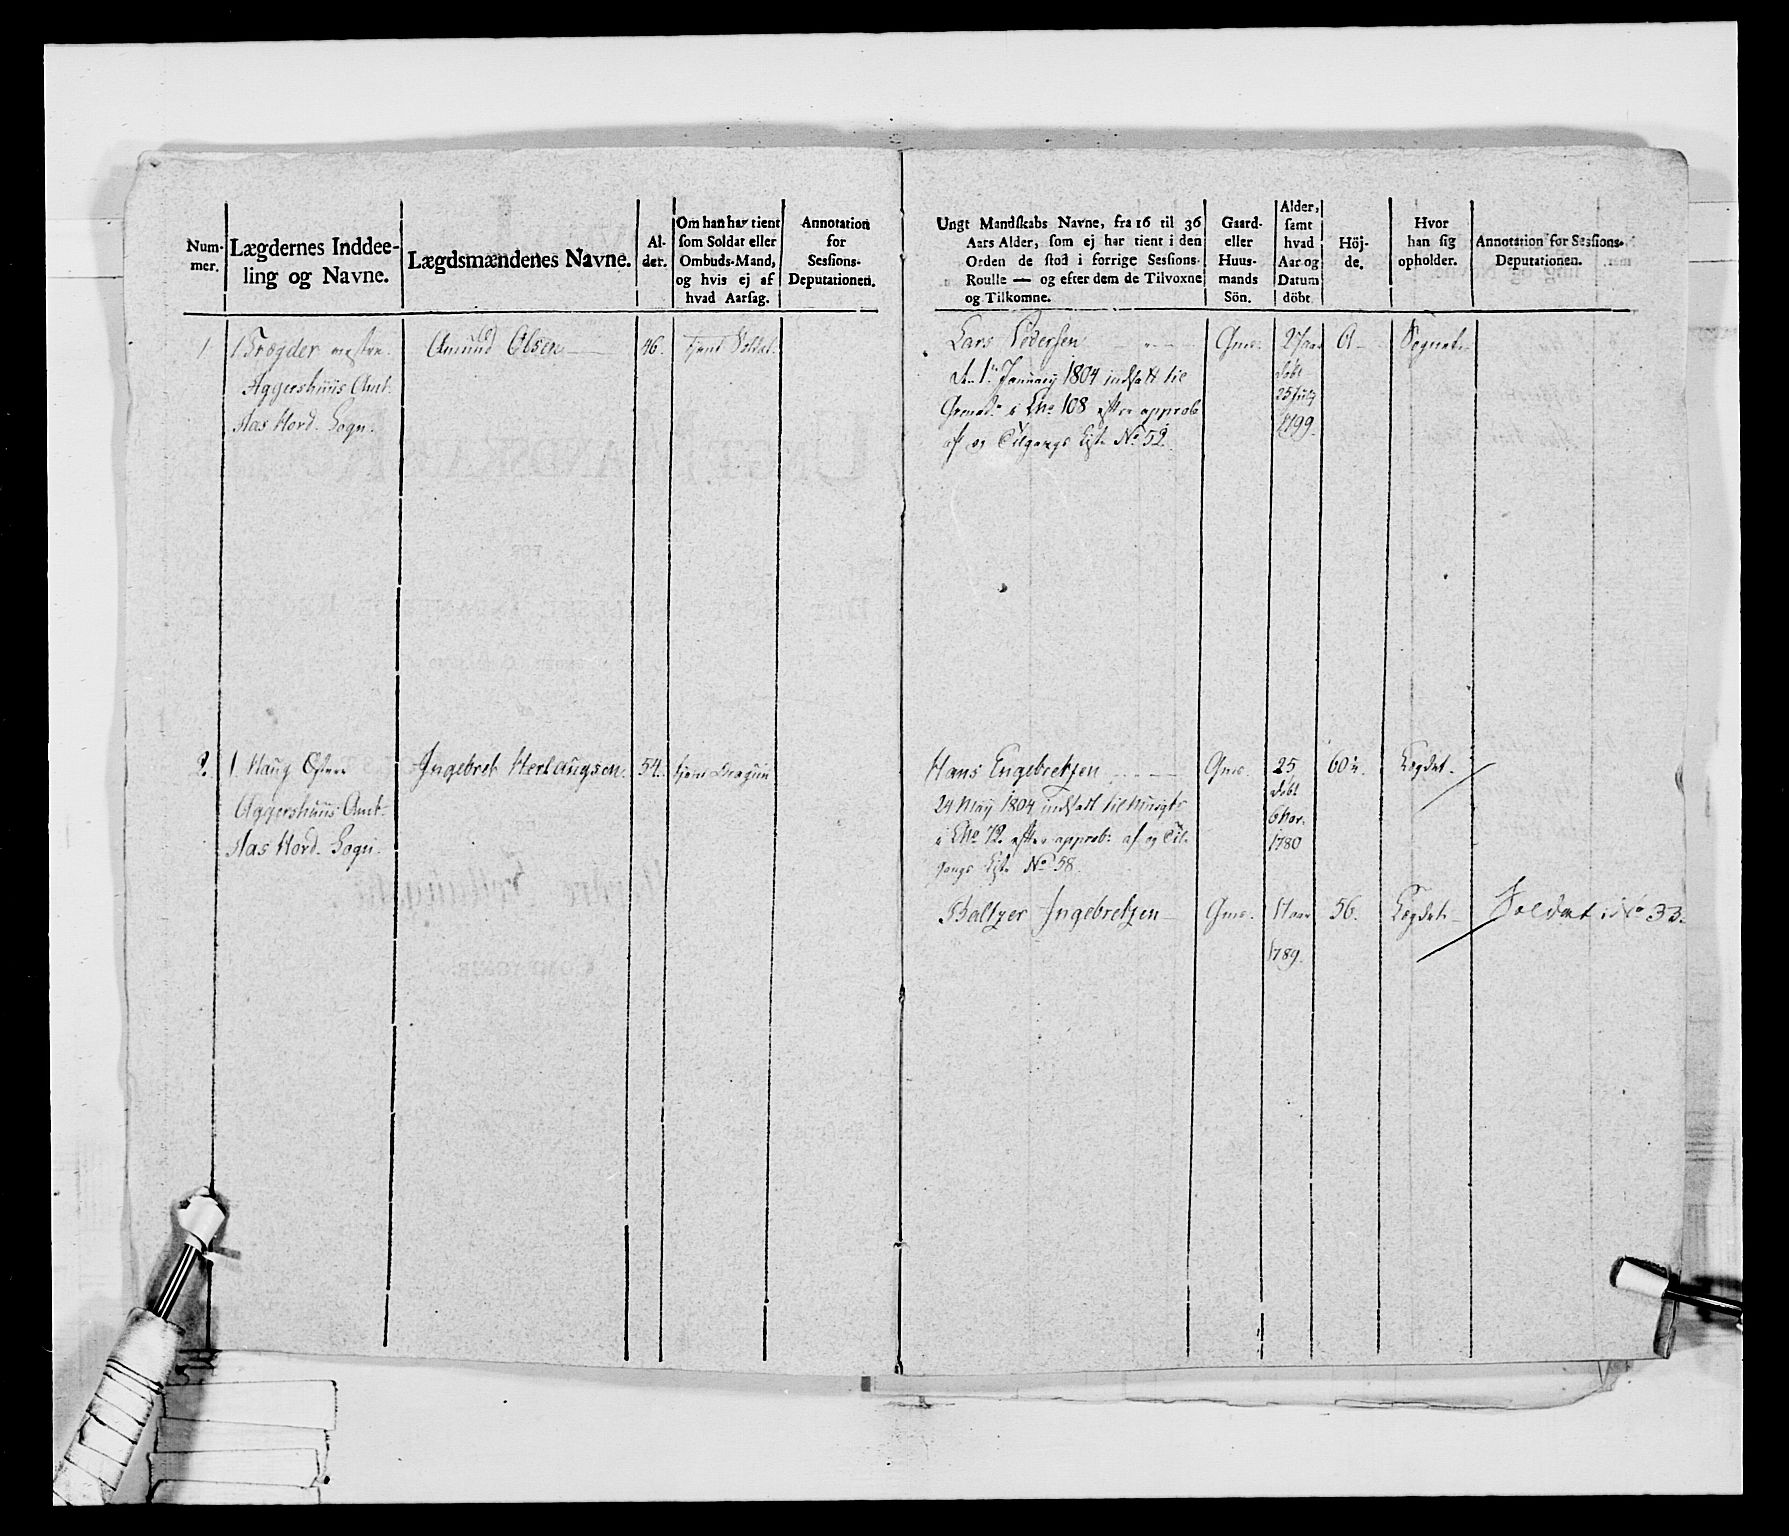 Num-
mer.
Lægdernes Inddee-
ling og Navne.
Lægdsmændenes Navne.
Al-
der.
Om han har tient
som Soldat eller
Ombuds-Mand,
og hvis ej af
hvad Aarsag.
Annotation
for
Sessions-
Deputationen.
Ungt Mandskabs Navne, fra 16 til 36
Aars Alder, som ej har tient i den
Orden de stod i forrige Sessions-
Roulle — og efter dem de Tilvoxne
og Tilkomne.
Gaard-
eller
Huus-
mands
Sön.
Alder,
samt
hvad
Aar og
Datum
döbt
Höj-
de.
Hvor
han sig
opholder.
Annotation for Sessions-
Deputationen.
1
1 Brøgder
Aggershuus Amt.
Aas Hord. Sogn.
Amund Olsen
46.
tient Soldat.
Lars Pedersen
d. 1te January 1804 indsatt til
Grenad. i No 108 efter approb
af og Tilgangs Liste No 52.
Gms.
döbt
25 July
1799.
Sognet.
2.
1. Haug Østre
Aggershuus Amt.
Aas Hord. Sogn.
Ingebret Herlaugsen.
54.
tient Dragun
Hans Engebretsen
24 May 1804 indsatt til
i No 72. efter approb: af og Til-
gangs Liste No 58.
Gms.
25
döbt
6 Nov.
1780
60
Lægdet.
Baltzer Ingebretsen
Gms.
1789.
56.
Lægdet
Soldat i No 33.